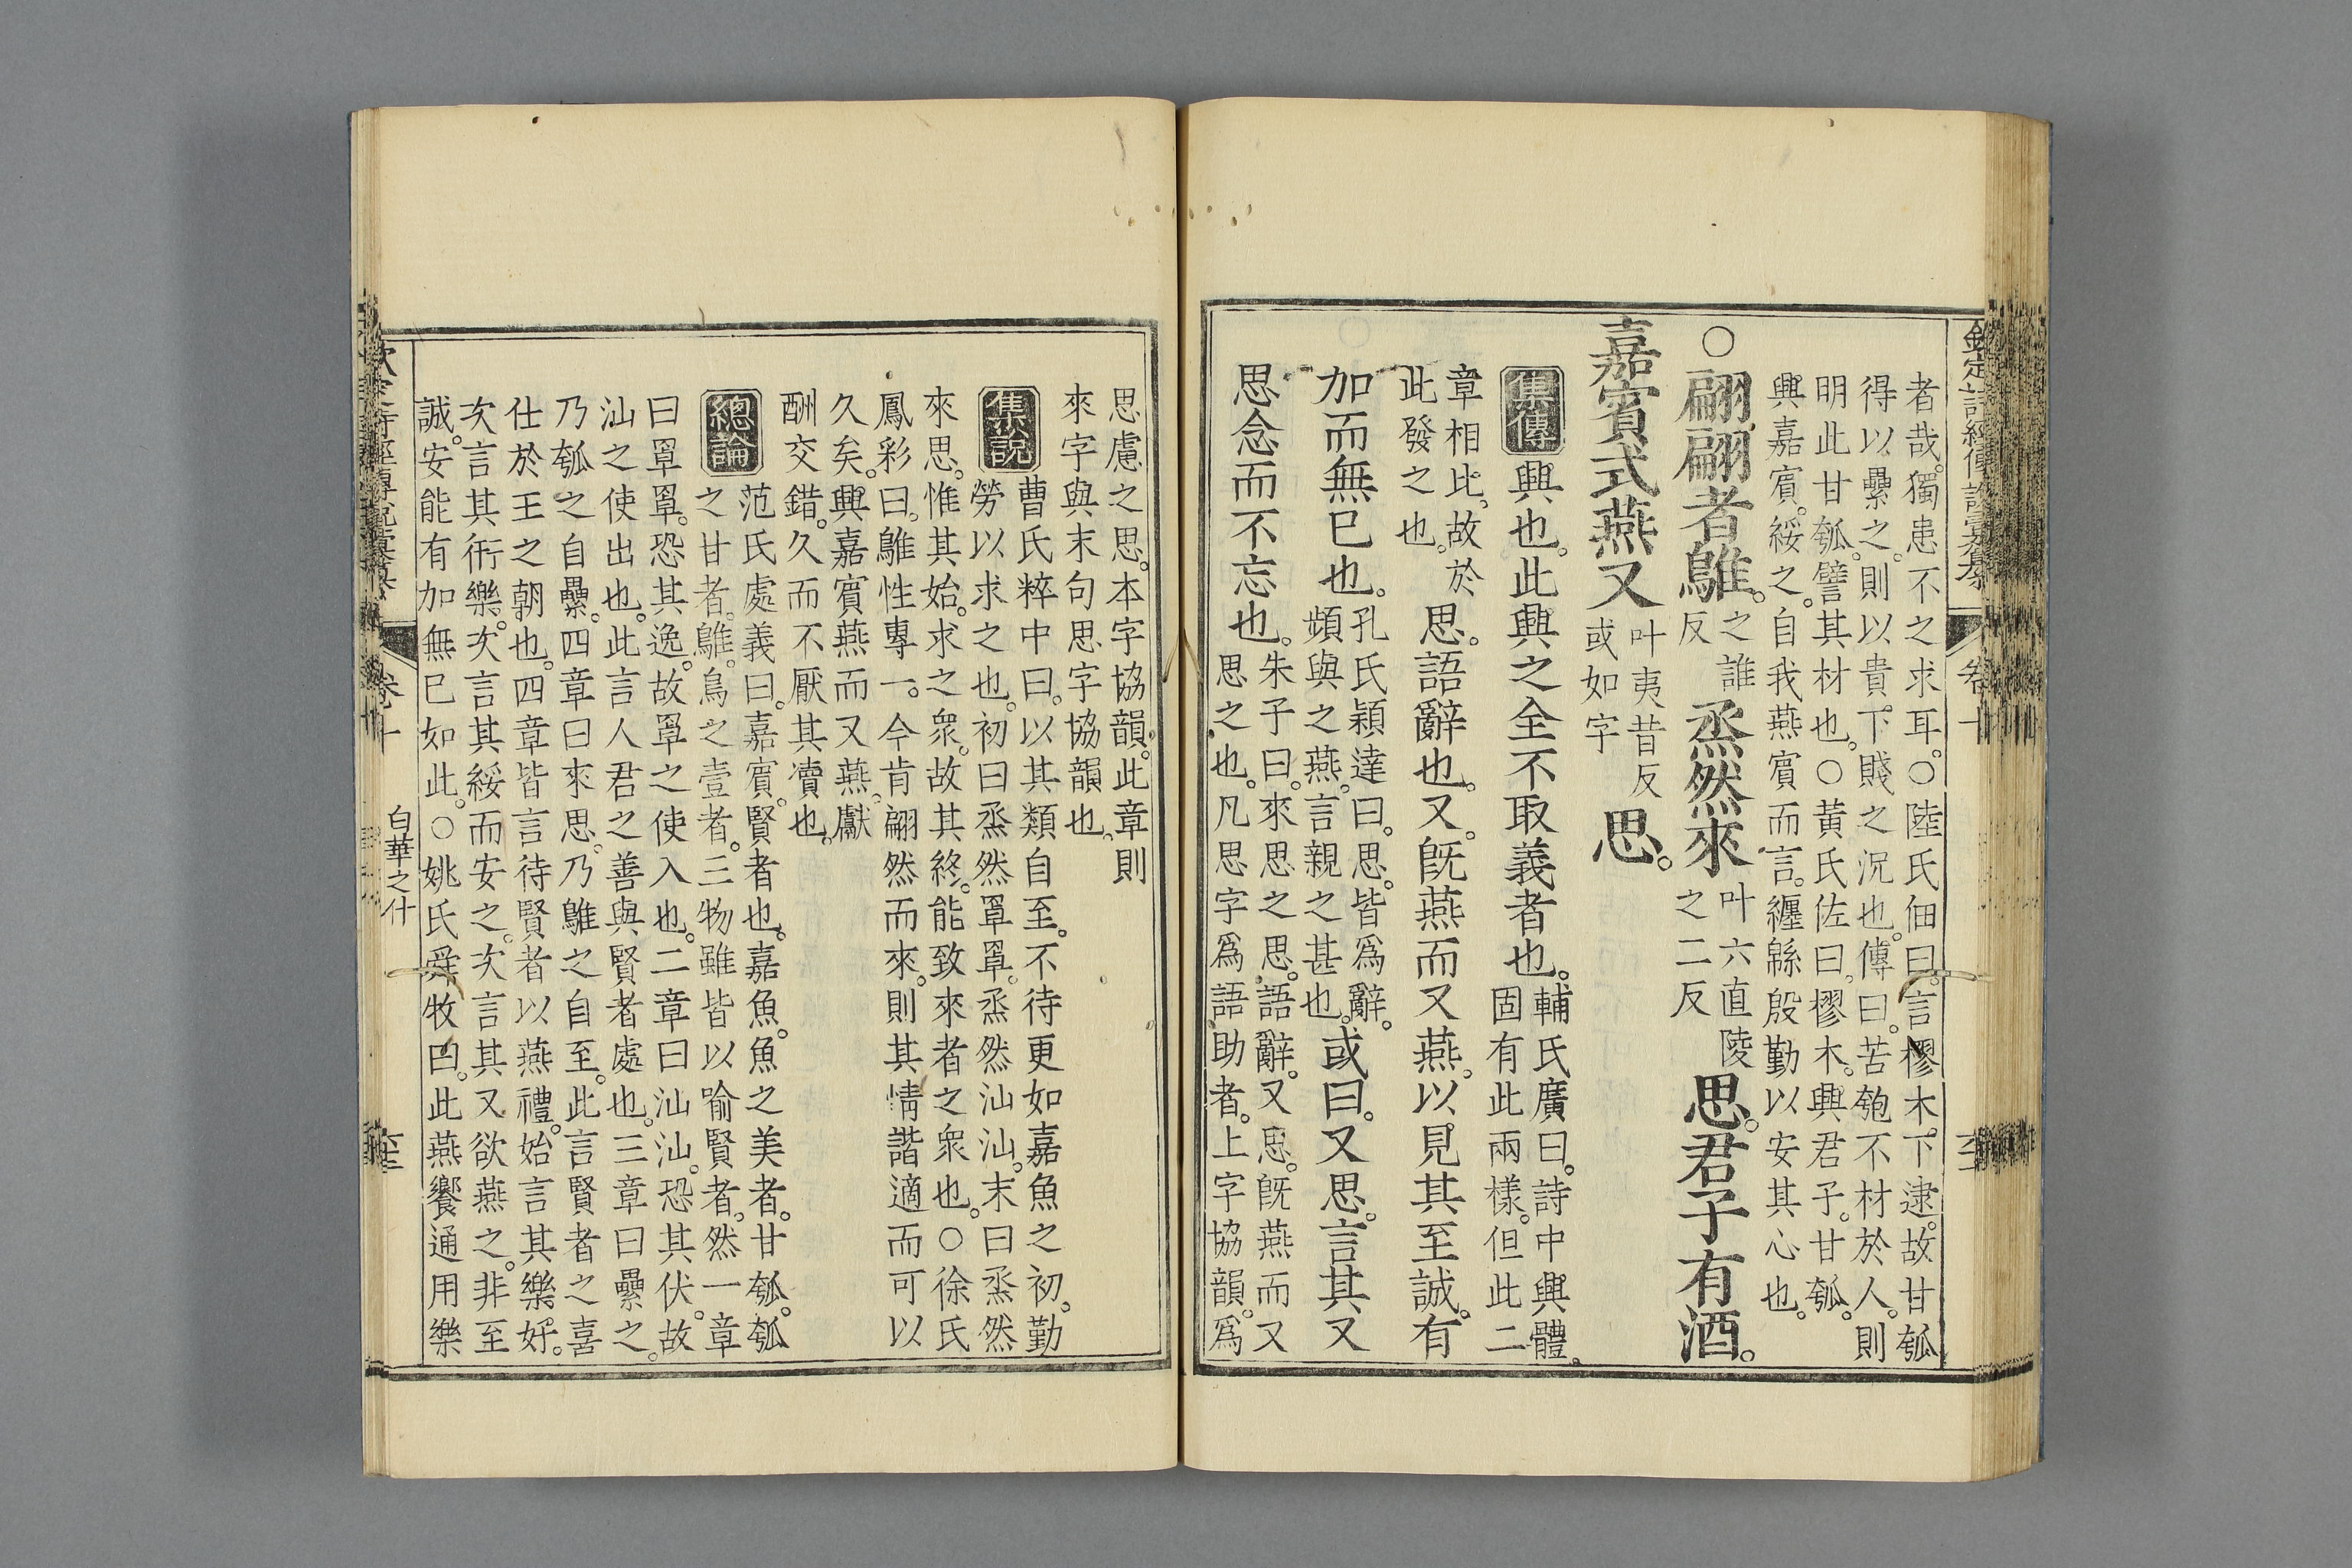 欽定詩經傳說彙纂 卷十
者哉。獨患不之求耳。○陸氏佃曰。言樛木。下逮。故甘瓠
得以纍之。則以貴下賤之況也。傳曰。苦匏不材於人。則
明此甘瓠。譬其材也。○黃氏佐曰。樛木。興君子。甘瓠。
興嘉賓。綏之。自我燕賓而言。纏緜殷勤以安其心也。
○翩翩者鵻。之誰反烝然來叶六直陵之二反思。君子有酒。
嘉賓式燕又叶夷昔反或如字思。
集傳 興也。此興之全不取義者也。輔氏廣曰。詩中興體。固有此兩樣。但此二
章相比。故於此發之也。思。語辭也。又。旣燕而又燕。以見其至誠。有
加而無已也。孔氏穎達曰。思。皆爲辭。頻與之燕。言親之甚也。或曰。又思。言其又
思念而不忘也。朱子曰。來思之思。語辭。又思。旣燕而又思之也。凡思字爲語助者。上字協韻。爲
思慮之思。本字協韻。此章則
來字與末句思字協韻也。
集說 曹氏粹中曰。以其類自至。不待更如嘉魚之初。勤
勞以求之也。初曰烝然罩罩。烝然汕汕。末曰烝然
來思。惟其始。求之衆。故其終。能致來者之衆也。○徐氏
鳳彩曰。鵻性專一。今肯翩然而來。則其情諧適而可以
久矣。興嘉賓燕而又燕。獻
酬交錯。久而不厭其瀆也。
總論 范氏處義曰。嘉賓。賢者也。嘉魚。魚之美者。甘瓠。瓠
之甘者。鵻。鳥之壹者。三物雖皆以喻賢者。然一章
曰罩罩。恐其逸。故罩之使入也。二章曰汕汕。恐其伏。故
汕之使出也。此言人君之善與賢者處也。三章曰纍之。
乃瓠之自纍。四章曰來思。乃鵻之自至。此言賢者之喜
仕於王之朝也。四章皆言待賢者以燕禮。始言其樂好。
次言其衎樂。次言其綏而安之。次言其又欲燕之。非至
誠。安能有加無已如此。○姚氏舜牧曰。此燕饗通用樂
卷十 白華之什